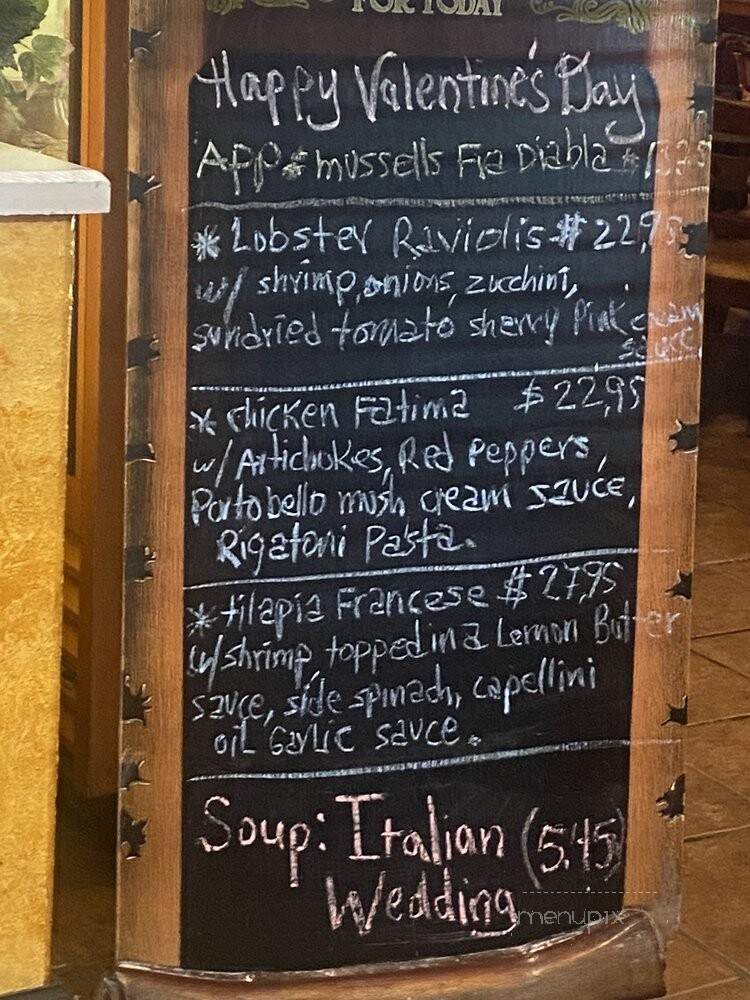 FOR TODAY
Happy Valentine's Day
App * mussells Fra Diabla * 13,95
* Lobster Raviolis $ 22,95
w/ shrimp, onions, zucchini,
sundried tomato sherry Pink cream
sauce.
* chicken Fatima $ 22,95
w/ Artichokes, Red Peppers,
Portobello mush cream sauce,
Rigatoni Pasta.
* tilapia Francese $ 27,95
w/ shrimp, topped in a Lemon Butter
sauce, side spinach, capellini
oil Garlic sauce.
Soup: Italian (5.45)
Wedding
menupix